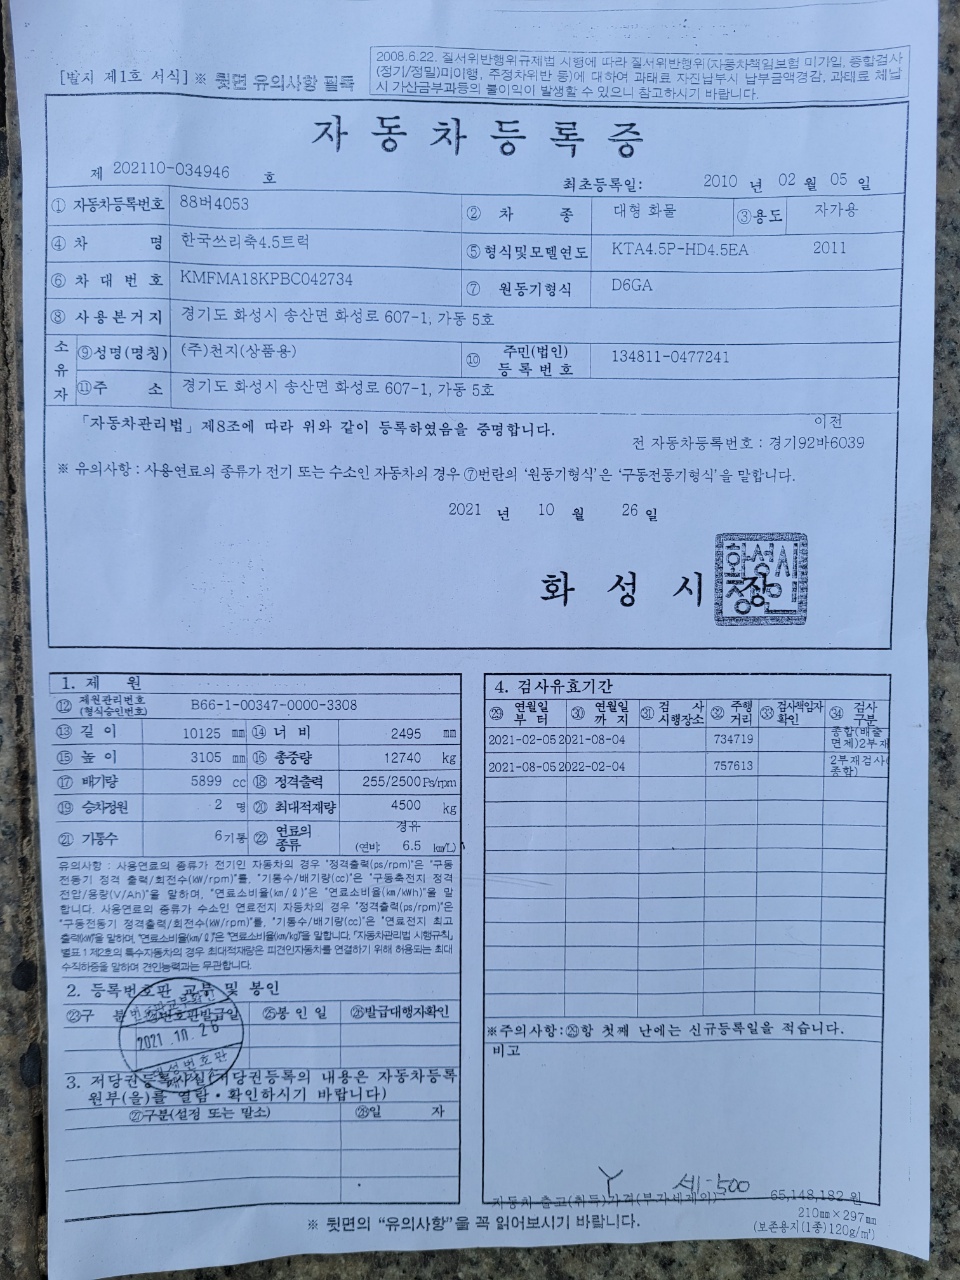 [별지 제1호 서식] ※ 뒷면 유의사항 필독
2008.6.22. 질서위반행위규제법 시행에 따라 질서위반행위(자동차책임보험 미가입, 종합검사
(정기/정밀)미이행, 주정차위반 등)에 대하여 과태료 자진납부시 납부금액경감, 과태료 체납
시 가산금부과등의 불이익이 발생할 수 있으니 참고하시기 바랍니다.
자 동 차 등 록 증
제 202110-034946 호
최초등록일: 2010 년 02 월 05 일
① 자동차등록번호 88버4053 ② 차 종 대형 화물 ③용도 자가용
④ 차 명 한국쓰리축4.5트럭 ⑤ 형식및모델연도 KTA4.5P-HD4.5EA 2011
⑥ 차 대 번 호 KMFMA18KPBC042734 ⑦ 원동기형식 D6GA
⑧ 사 용 본 거 지 경기도 화성시 송산면 화성로 607-1, 가동 5호
소유자 ⑨성명(명칭) (주)천지(상품용) ⑩ 주민(법인)등록번호 134811-0477241
⑪주 소 경기도 화성시 송산면 화성로 607-1, 가동 5호
「자동차관리법」 제8조에 따라 위와 같이 등록하였음을 증명합니다.
이전
전 자동차등록번호 : 경기92바6039
※ 유의사항 : 사용연료의 종류가 전기 또는 수소인 자동차의 경우 ⑦번란의 '원동기형식'은 '구동전동기형식'을 말합니다.
2021 년 10 월 26 일
화 성 시 장
화성시장인
1. 제 원
⑫ 제원관리번호(형식승인번호) B66-1-00347-0000-3308
⑬ 길 이 10125 mm ⑭ 너 비 2495 mm
⑮ 높 이 3105 mm ⑯ 총중량 12740 kg
⑰ 배기량 5899 cc ⑱ 정격출력 255/2500 Ps/rpm
⑲ 승차정원 2 명 ⑳ 최대적재량 4500 kg
㉑ 기통수 6기통 ㉒ 연료의 종류 경유 (연비 6.5 km/L)
유의사항 : 사용연료의 종류가 전기인 자동차의 경우 "정격출력(ps/rpm)"은 "구동
전동기 정격 출력/회전수(kW/rpm)"를, "기통수/배기량(cc)"은 "구동축전지 정격
전압/용량(V/Ah)"을 말하며, "연료소비율(km/ℓ)"은 "연료소비율(km/kWh)"을 말
합니다. 사용연료의 종류가 수소인 연료전지 자동차의 경우 "정격출력(ps/rpm)"은
"구동전동기 정격출력/회전수(kW/rpm)"를, "기통수/배기량(cc)"은 "연료전지 최고
출력(kW)"을 말하며, "연료소비율(km/ℓ)"은 "연료소비율(km/kg)"을 말합니다. 「자동차관리법 시행규칙」
별표 1 제2호의 특수자동차의 경우 최대적재량은 피견인자동차를 연결하기 위해 허용되는 최대
수직하중을 말하며 견인능력과는 무관합니다.
2. 등록번호판 교부 및 봉인
㉓구 분 ㉔번호판발급일 ㉕봉 인 일 ㉖발급대행자확인
2021. 10. 26
3. 저당권등록사실(저당권등록의 내용은 자동차등록
원부(을)를 열람・확인하시기 바랍니다)
㉗구분(설정 또는 말소) ㉘일 자
4. 검사유효기간
㉙ 연월일부터 ㉚ 연월일까지 ㉛ 검사시행장소 ㉜ 주행거리 ㉝ 검사책임자확인 ㉞ 검사구분
2021-02-05 2021-08-04 734719 종합(배출면제)2부재
2021-08-05 2022-02-04 757613 2부재검사(종합)
※주의사항:㉙항 첫째 난에는 신규등록일을 적습니다.
비고
Y 세-500
자동차 출고(취득)가격(부가세제외) 65,148,182 원
※ 뒷면의 "유의사항"을 꼭 읽어보시기 바랍니다.
210mm×297mm
(보존용지(1종)120g/㎡)